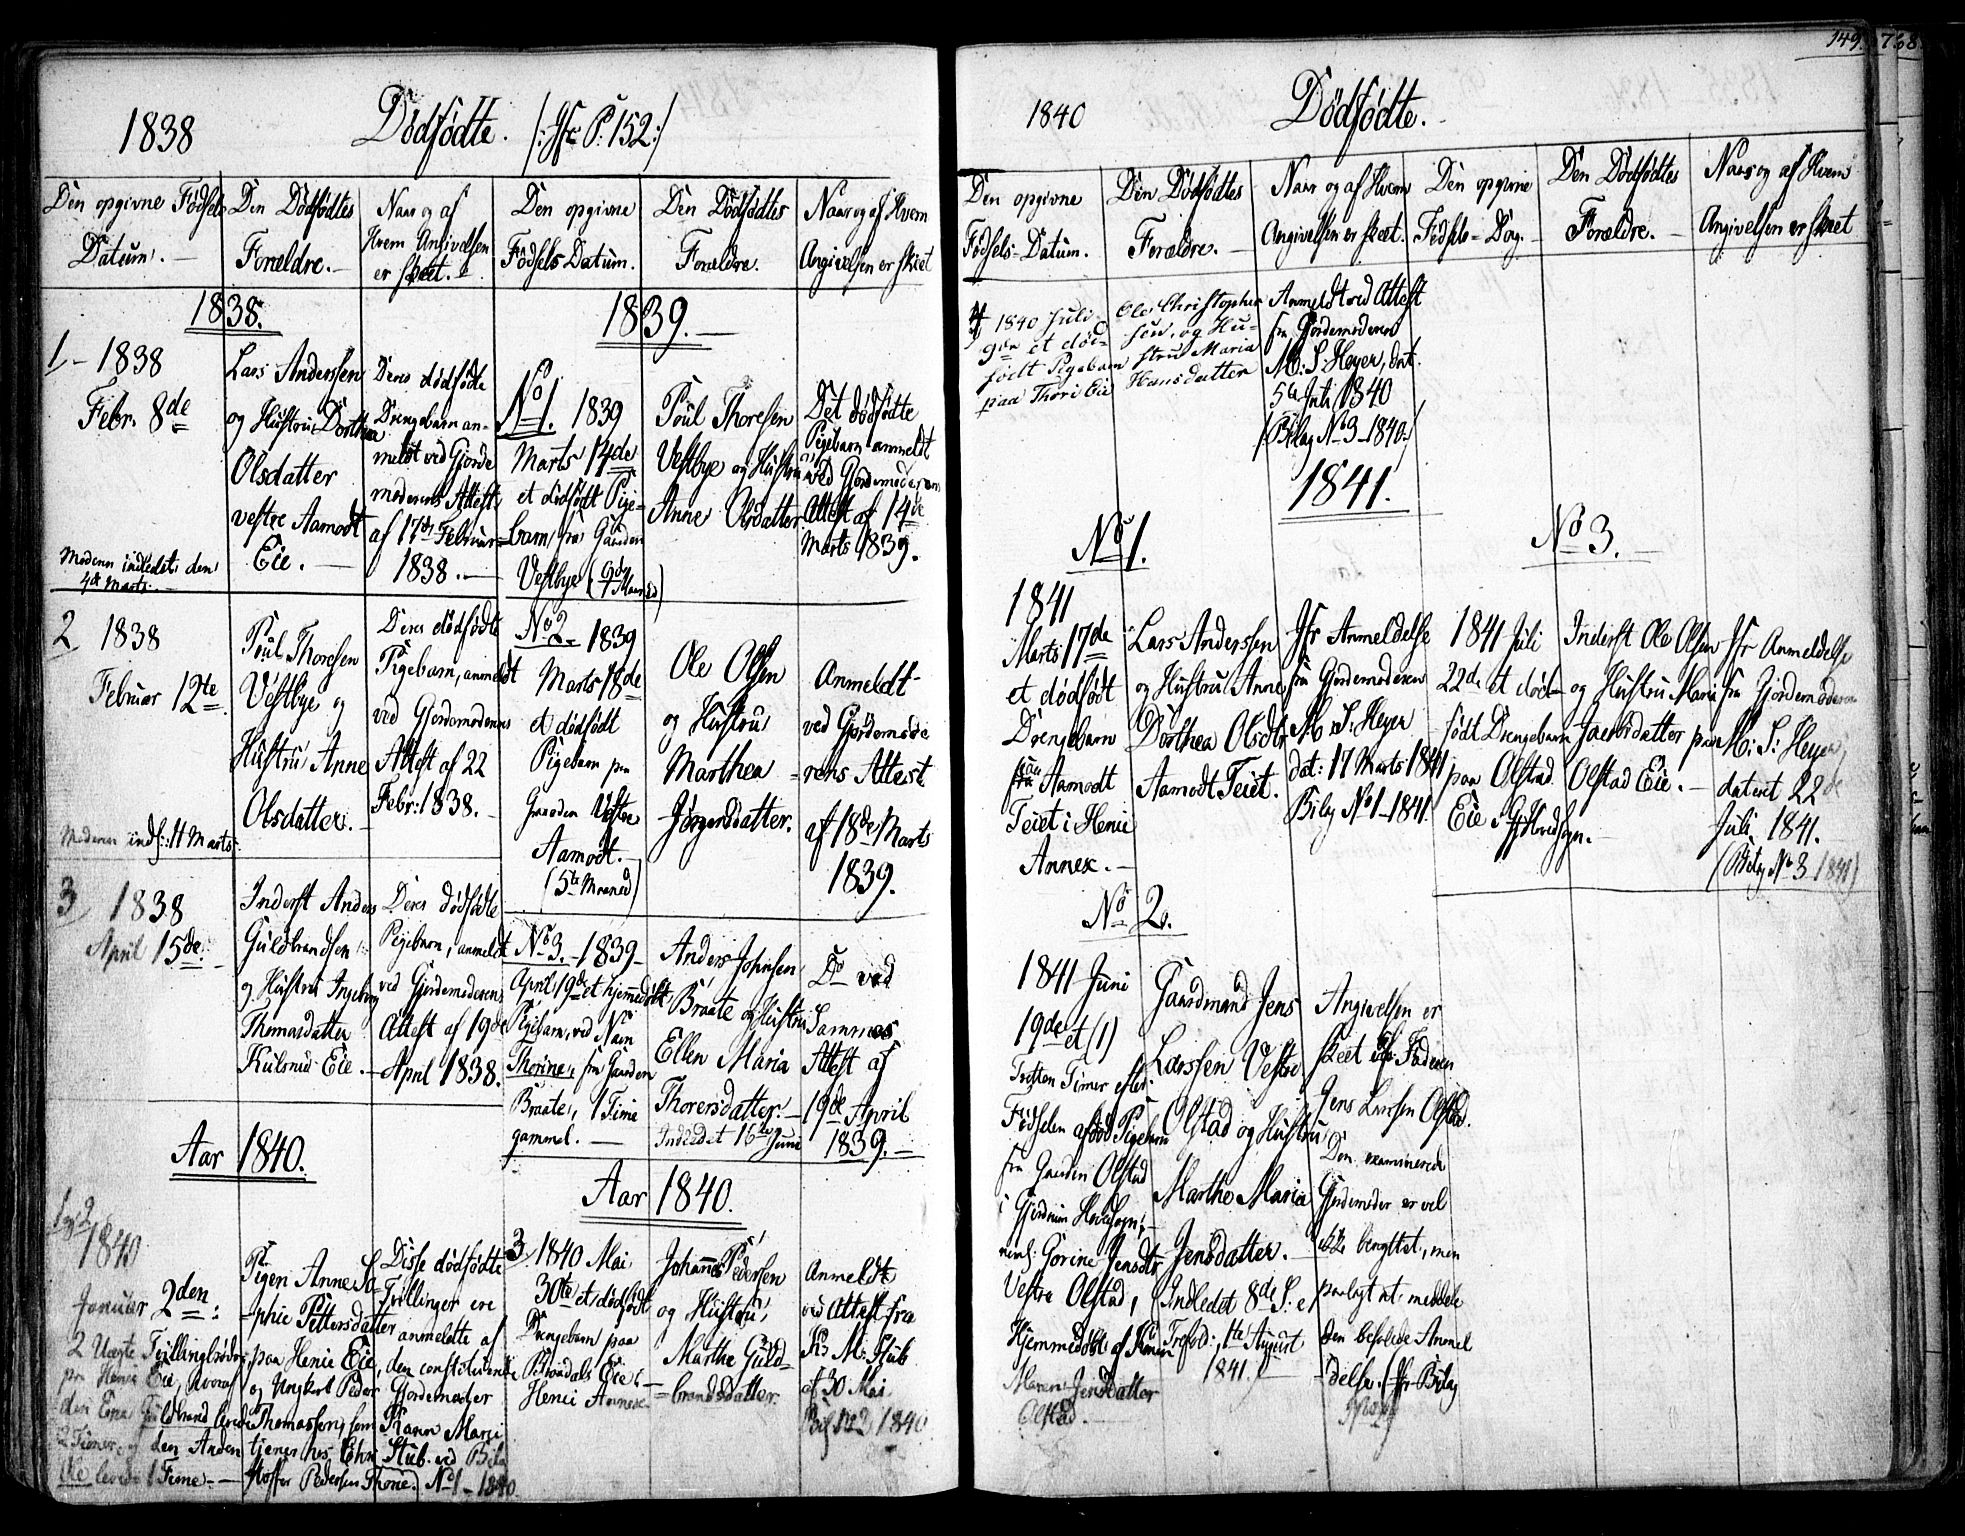 1838
Dödfödte. /: Jfr P. 152:/
Den opgivne Födsels
Datum. -
Den Dödfödtes
Forældre. -
Naar og af
Hvem Angivelsen
er skeet. -
Den opgivne
Födsels Datum.
Den Dödfödtes
Forældre.
Naar og af Hvem
Angivelsen er skeet
1838.
1, - 1838
Febr. 8de
Moderen indledet den
4de Marts. -
Lars Anderssen
og Hustru Dorthea
Olsdatter
vestre Aamodt
Eie. -
Deres dödfödte
Drengebarn an-
meldt ved Gjorde
moderens Attest
af 17de Februar
1838. -
2, 1838
Februar 12te.
Moderen inds: 11 Marts
Poul Thoresen
Vestbye og
Hustru Anne
Olsdatter. -
Deres dödfödte
Pigebarn, anmeldt
ved Gjordemoderens
Attest af 22
Febr: 1838. -
3, 1838
April 15de. -
Inderst Anders
Guldbrandsen
og Hustru Ingeborg
Thomasdatter
Kulsrud Eie. -
Deres dödfödte
Pigebarn, anmeldt
ved Gjordemoderens
Attest af 19de
April 1838.
Aar 1840.
1 og 2
1840
Januar 2den:
2 Uægte Tvillingfödte
paa Henie Eie, hvoraf
den Ene Guldbrand levede
2 Timer, og den Anden
levede 1 Time. -
Pigen Anne So-
phie Pettersdatter
paa Henie Eie,
og Ungkarl Peder
Thomassen, som
tjener hos
Pedersen Thorie.
Disse dödfödte
Tvillinger ere
anmeldte af
den constituerede
Gjordemoder
Karen Marie
Stub ved Bilag
No 1 - 1840.
1839. -
No 1. 1839
Marts 14de
et dödfödt Pige-
barn, fra Gaarden
Vestbye
Poul Thoresen
Vestbye og Hustru
Anne Olsdatter
Det dödfödte
Pigebarn anmeldt
ved Gjordemoderens
Attest af 14de
Marts 1839.
No 2. 1839
Marts 18de
et dödfödt
Pigebarn paa
Gaarden Vestre
Aamodt. -
(5te Maaned)
Ole Olsen
og Hustru
Marthea
Jörgensdatter.
Anmeldt
ved Gjordemode
rens Attest
af 18de Marts
1839.
No 3. - 1839 -
April 19de et hjemmedöbt
Pigebarn, ved Navn
Thorine, fra Gaarden
Braate, 1 Time
gammel. -
Anders Johnsen
Braate og Hustru
Ellen Maria
Thoresdatter. -
Indledet 16de Juni
Do ved
Sammes
Attest af
19de April
1839. -
Aar 1840.
3, 1840 Mai
30te et dödfödt
Drengebarn paa
Brændals Eie i
Henie Annex.
Johannes Pedersen
og Hustru
Marthe Guld-
brandsdatter.
Anmeldt
ved Attest fra
K: M: Stub
af 30 Mai
Bil: No 2, 1840
149. 768
1840
Dödfödte. -
Den opgivne
Födsels-Datum.
Den Dödfödtes
Forældre. -
Naar og af Hvem
Angivelsen er skeet.
Den opgivne
Födsels-Dag. -
Den Dödfödtes
Forældre. -
Naar og af Hvem
Angivelsen er skeet
4, 1840 Juli
et död-
födt Pigebarn
paa Thori Eie
Ole Christopher
sen, og Hu-
stru Maria
Hansdatter
Anmeldt ved Attest
fra Gjordemoderen
M: S: Heyer, dat.
5te Juli 1840
(Bilag No 3 - 1840.)
1841.
No 1.
1841
Marts 17de
et dödfödt
Drengebarn
paa Aamodt
Teiet i Henie
Annex. -
Lars Anderssen
og Hustru Anne
Dorthea Olsdtr
Aamodt Teiet.
Jfr Anmeldelse
fra Gjordemoderen
M: S: Heyer
dat: 17 Marts 1841
Bilag No 1 - 1841.
No 2.
1841 Juni
19de et (1)
Tretten Timer efter
Födselen afdöd Pigebarn
fra Gaarden Olstad
i Gjerdrum Hovedsogn,
navnl: Gorine Jensdtr
Vestre Olstad,
Hjemmedöbt af Konen
Maren Jensdatter
Olstad. -
Gaardmand Jens
Larssen Vestre
Olstad og Hustru
Marthe Maria
Jensdatter. -
Indledet 8de S: e:
Trefold:, 1te August
1841.
Angivelsen er
skeet af Faderen
Jens Larssen Olstad.
Den examinerede
Gjordemoder er vel
ikke benyttet, men
paalagt at meddele
den befalede Anmel
delse. (Jfr Bilag
No 3.
1841 Juli
22de et död-
födt Drengebarn
paa Olstad
Eie i Hovedsogn. -
Inderst Ole Olsen
og Hustru Maria
Jacobsdatter paa
Olstad Eie. -
Jfr Anmeldelse
fra Gjordemoderen
M: S: Heyer
dateret 22de
Juli 1841.
(Bilag No 3 1841)